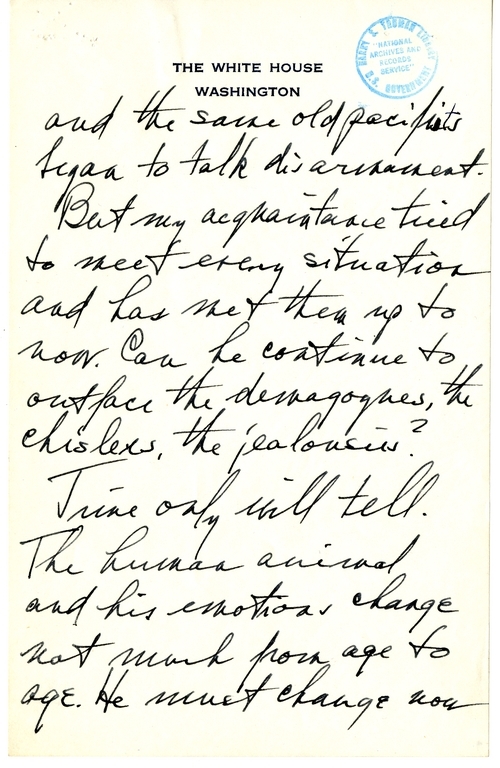 HARRY S. TRUMAN LIBRARY
"NATIONAL
ARCHIVES AND
RECORDS
SERVICE"
U.S. GOVERNMENT
THE WHITE HOUSE
WASHINGTON
and the same old pacifists
began to talk disarmament.
But my acquaintance tried
to meet every situation
and has met them up to
now. Can he continue to
outface the demagogues, the
chislers, the jealousies?
Time only will tell.
The human animal
and his emotions change
not much from age to
age. He must change now